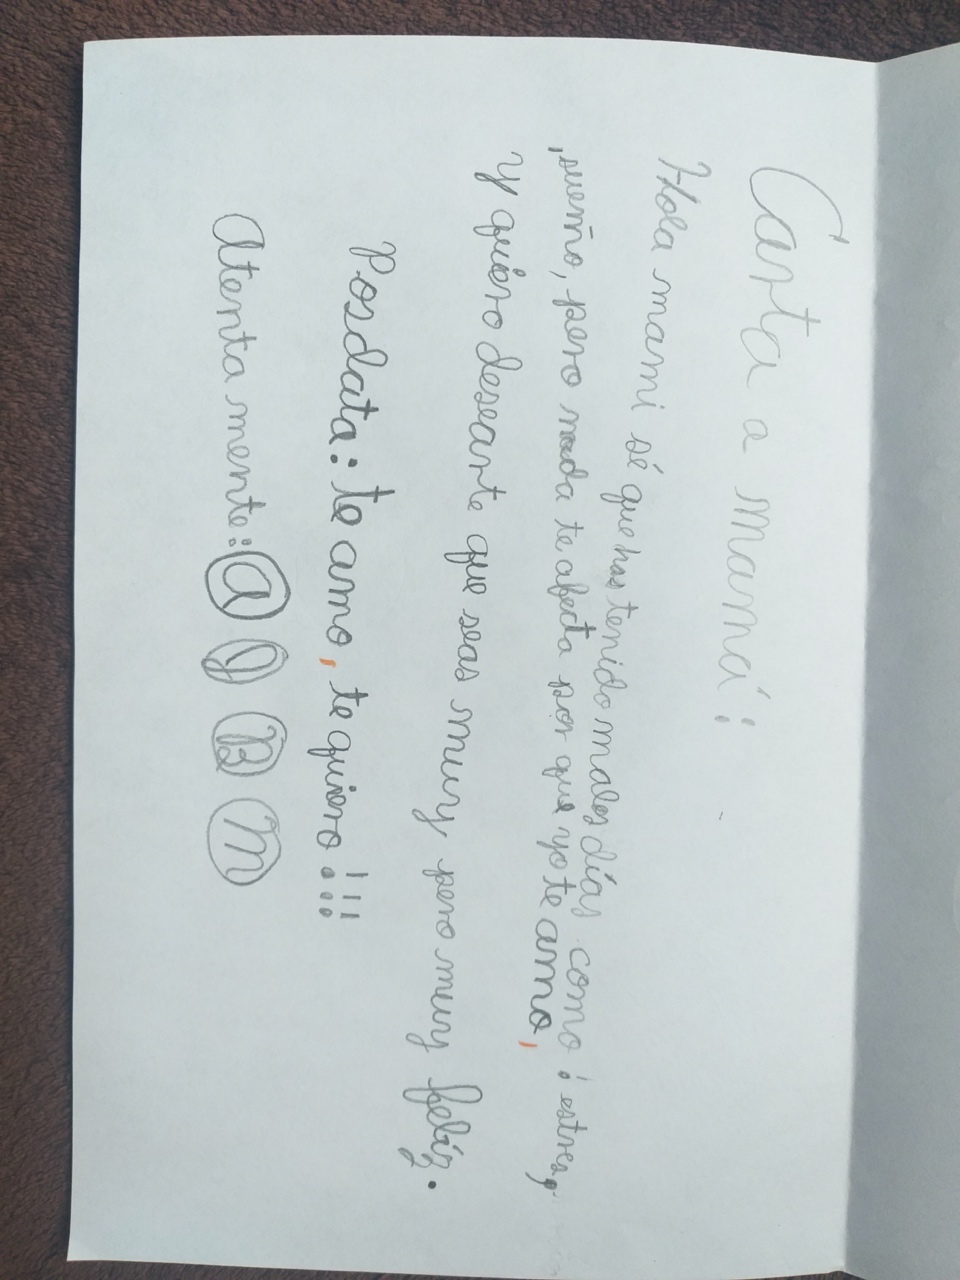 Carta a mamá:
Hola mami sé que has tenido malos días como: estres,
,sueño, pero nada te afecta por que yo te amo,
y quiero desearte que seas muy pero muy felíz.
Posdata: te amo, te quiero!!!
Atenta mente: A J B M